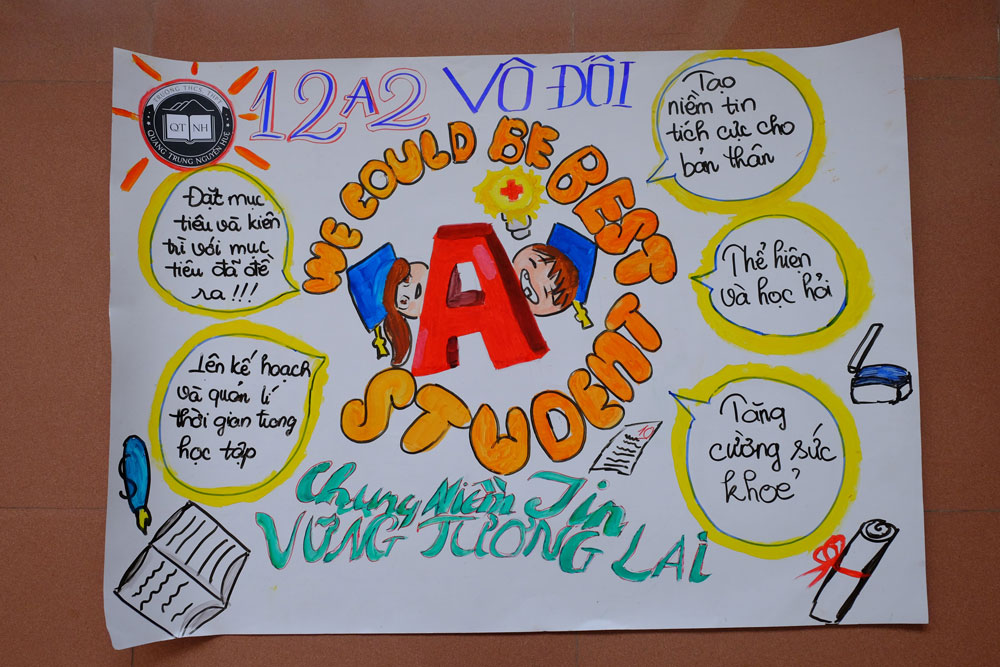 TRƯỜNG THCS, THPT
QT NH
QUANG TRUNG NGUYỄN HUỆ
12A2 VÔ ĐỐI
WE COULD BE BEST
A
STUDENT
Đặt mục
tiêu và kiên
trì với mục
tiêu đã đề
ra!!!
Lên kế hoạch
và quản lí
thời gian trong
học tập
Tạo
niềm tin
tích cực cho
bản thân
Thể hiện
và học hỏi
Tăng
cường sức
khoẻ
10
Chung Niềm Tin
VỮNG TƯƠNG LAI